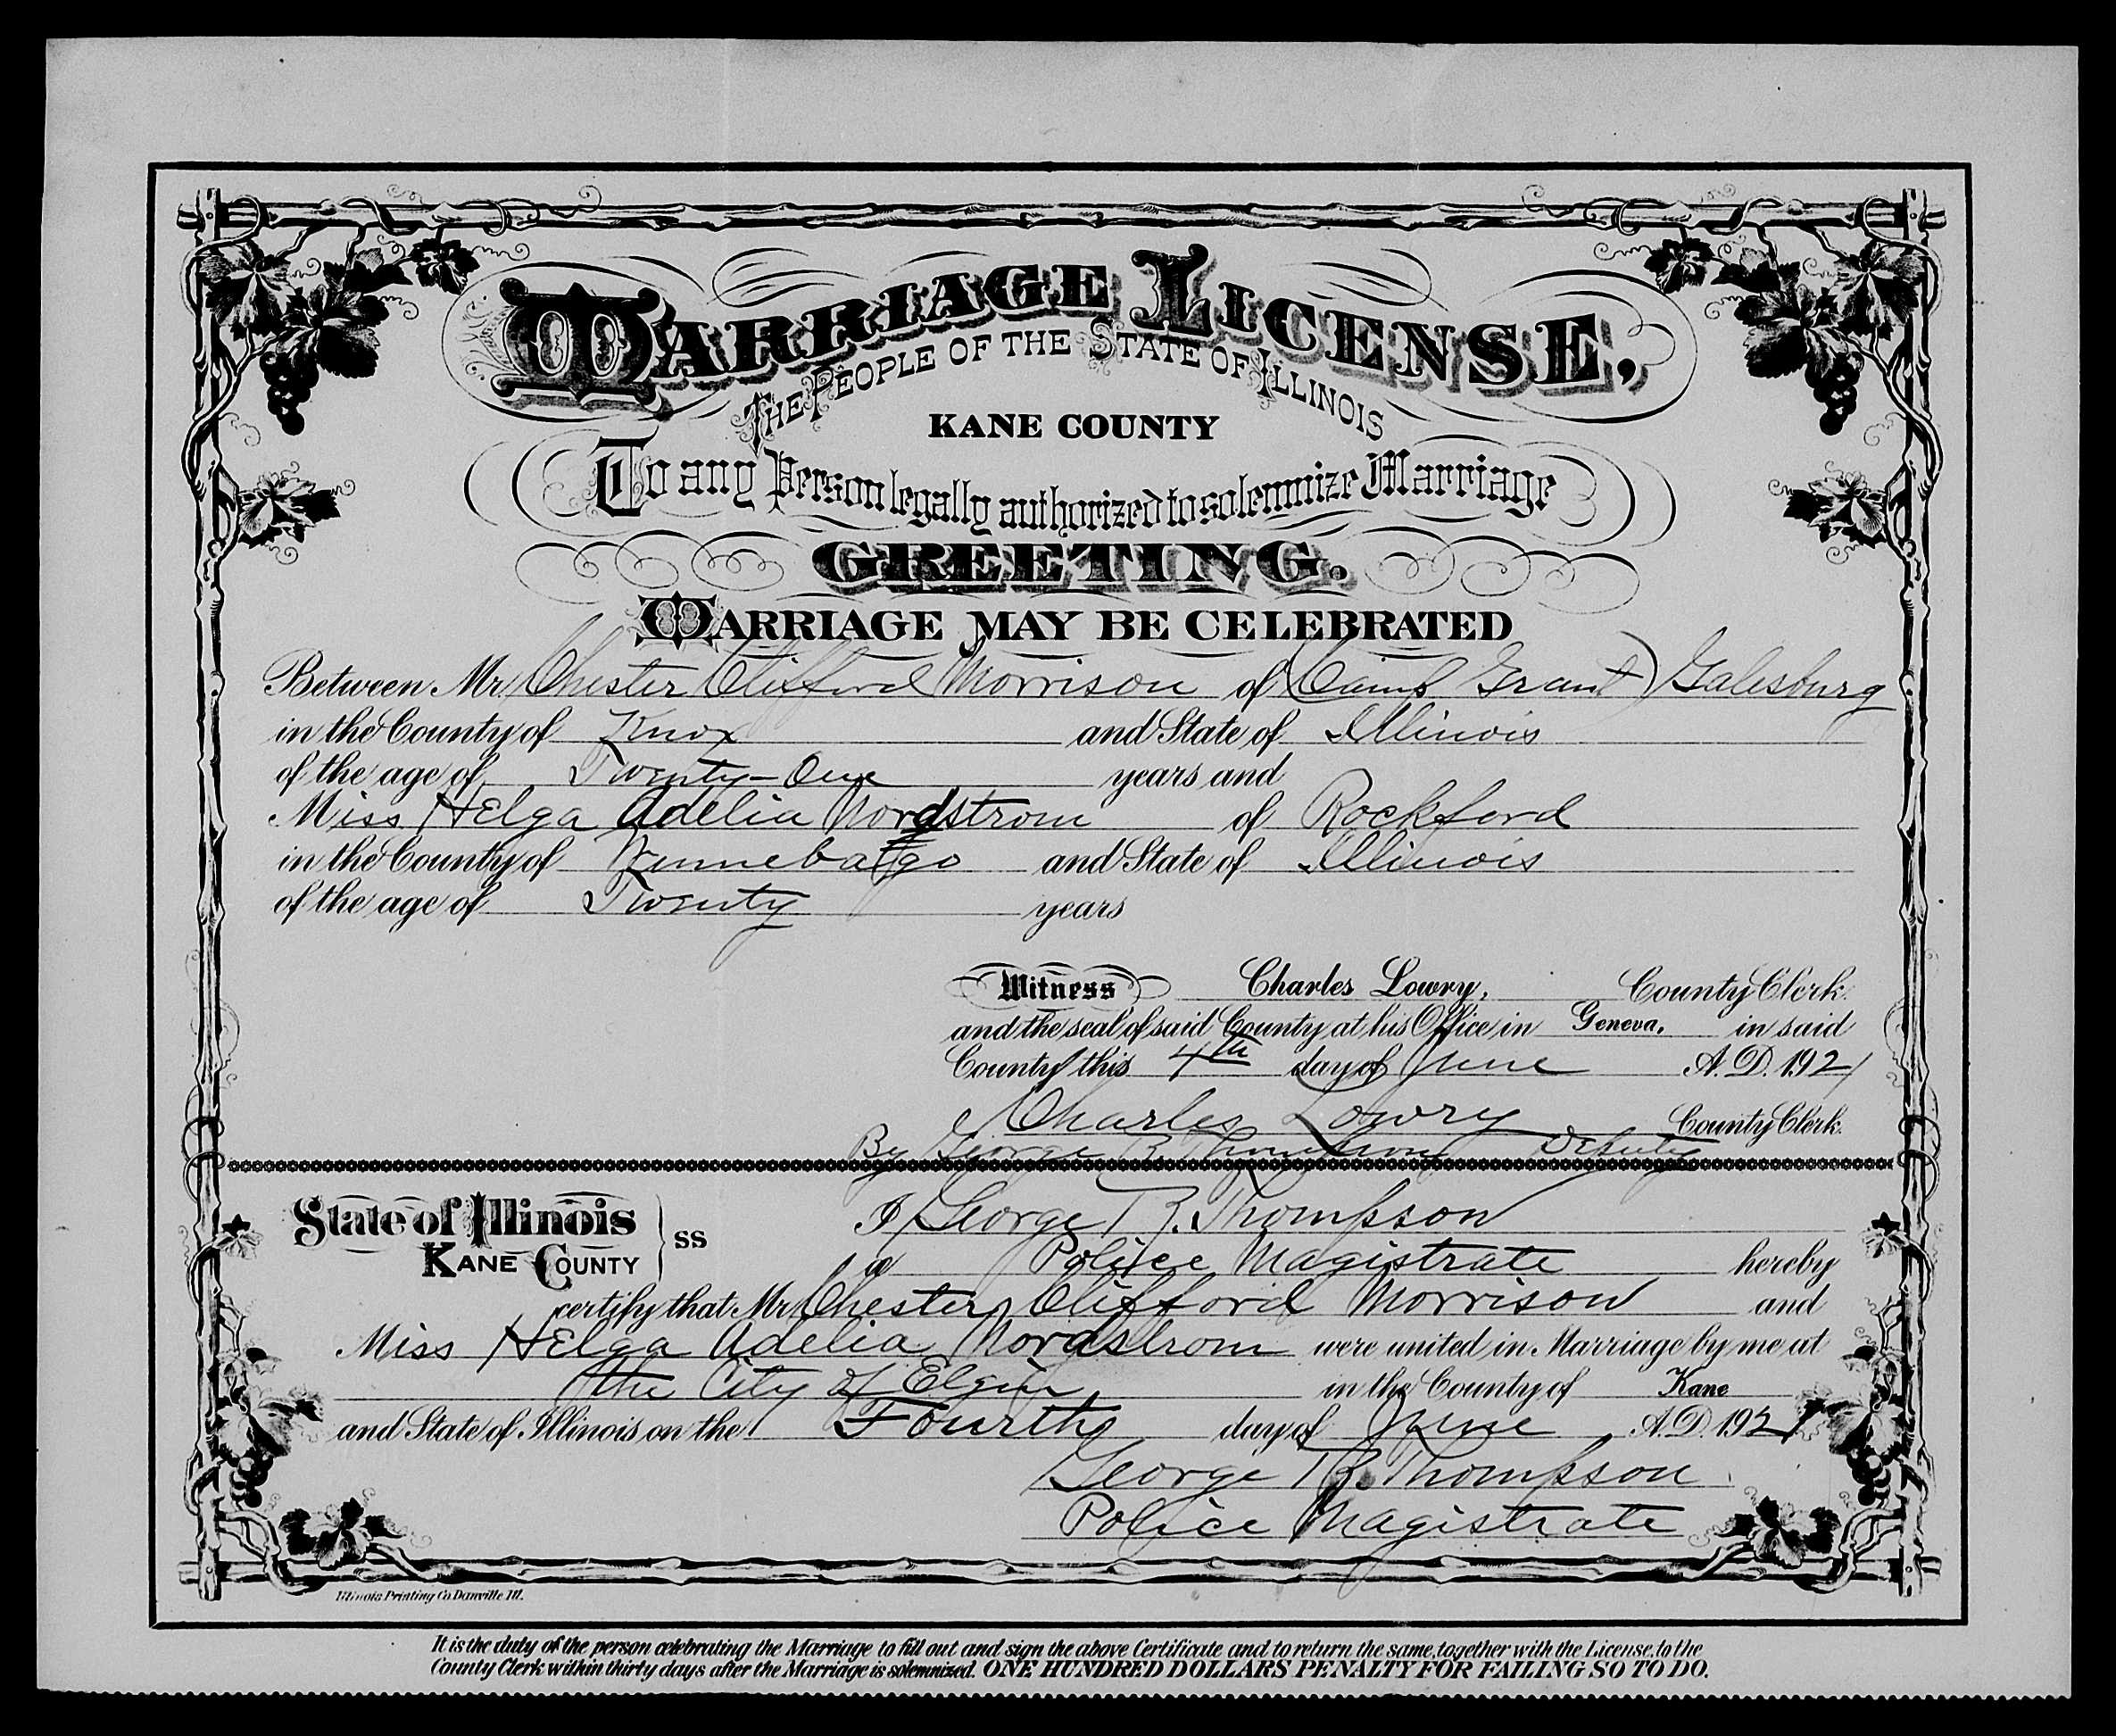 MARRIAGE LICENSE,
THE PEOPLE OF THE STATE OF ILLINOIS
KANE COUNTY
To any Person legally authorized to solemnize Marriage
GREETING.
MARRIAGE MAY BE CELEBRATED
Between Mr Chester Clifford Morrison of (Camp Grant) Galesburg
in the County of Knox and State of Illinois
of the age of Twenty-One years and
Miss Helga Adelia Nordstrom of Rockford
in the County of Winnebago and State of Illinois
of the age of Twenty years
Witness Charles Lowry, County Clerk
and the seal of said County at his Office in Geneva, in said
County this 4th day of June A.D. 1921
Charles Lowry County Clerk.
By George R Thompson Deputy
State of Illinois
KANE COUNTY } SS
I George R. Thompson
a Police Magistrate hereby
certify that Mr Chester Clifford Morrison and
Miss Helga Adelia Nordstrom were united in Marriage by me at
the City of Elgin in the County of Kane
and State of Illinois on the Fourth day of June A.D. 1921
George R. Thompson
Police Magistrate
Illinois Printing Co. Danville Ill.
It is the duty of the person celebrating the Marriage to fill out and sign the above Certificate and to return the same, together with the License, to the
County Clerk within thirty days after the Marriage is solemnized. ONE HUNDRED DOLLARS PENALTY FOR FAILING SO TO DO.